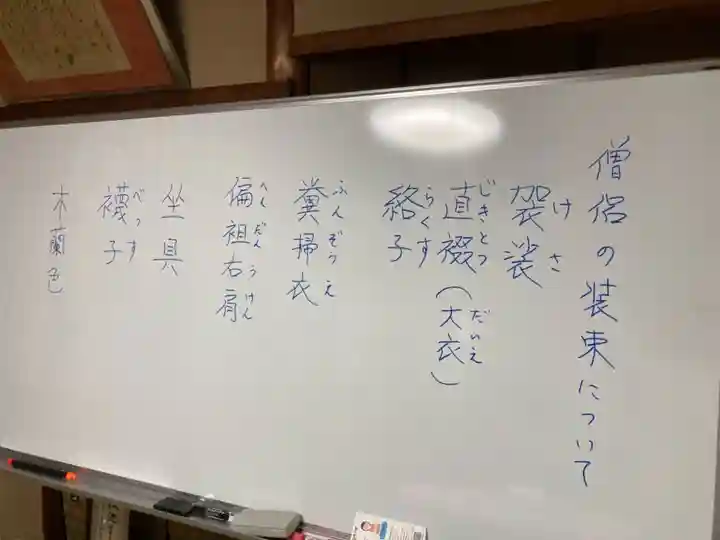 僧侶の装束について
袈裟
けさ
直綴(大衣)
じきとつ だいえ
絡子
らくす
糞掃衣
ふんぞうえ
偏袒右肩
へんだんうけん
坐具
襪子
べっす
木蘭色